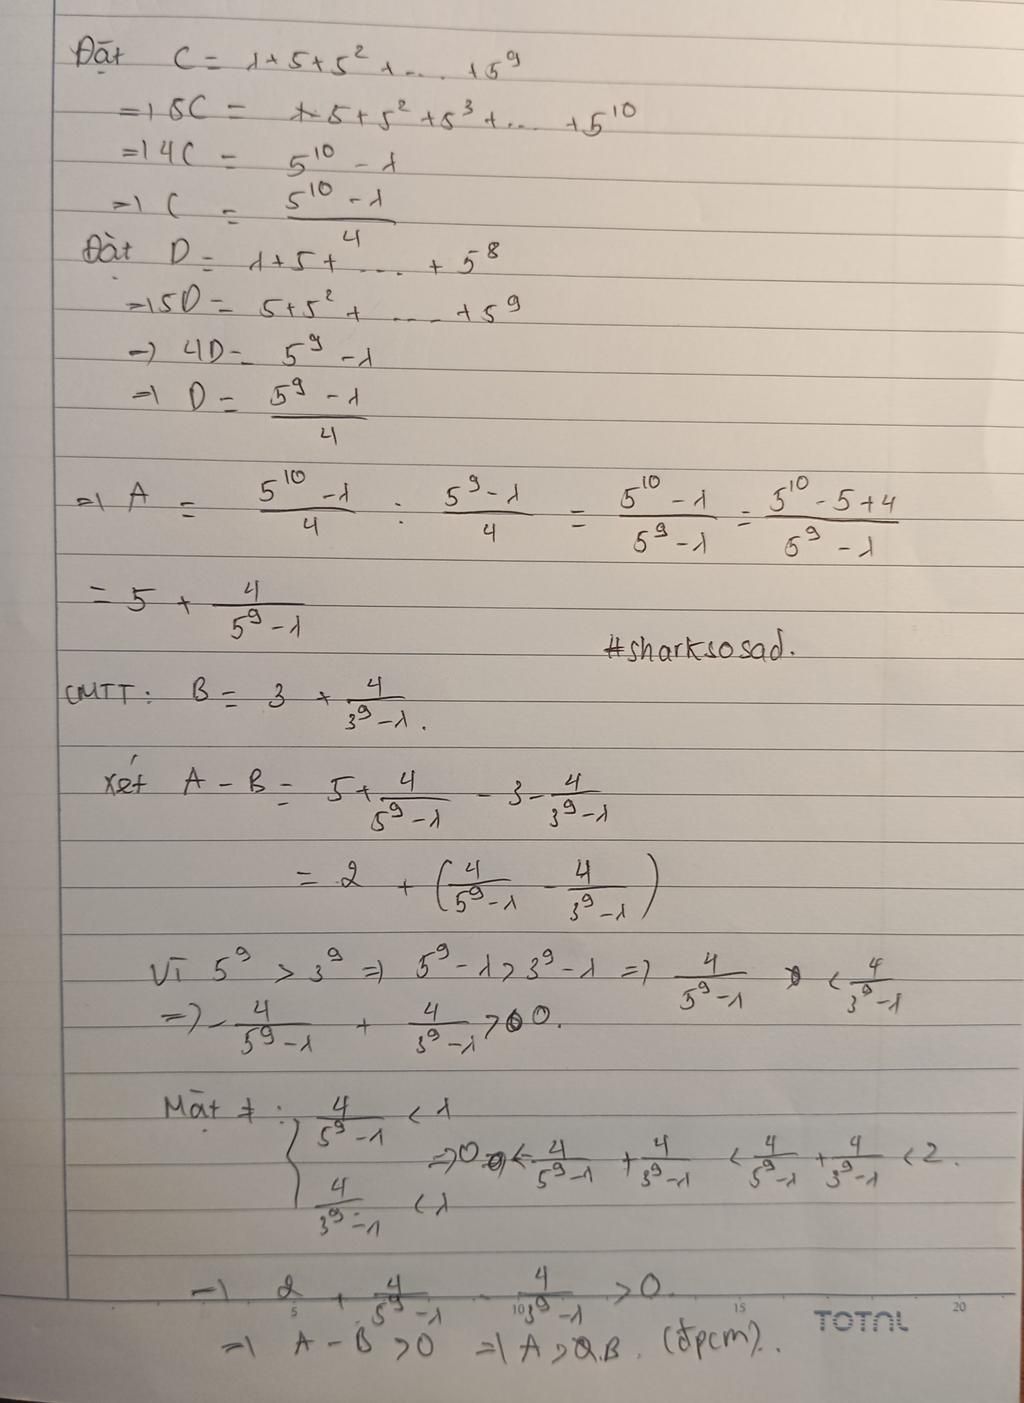 Đặt C = 1+5+5² + .... + 5⁹
=> 5C = 5+5² +5³ + .... + 5¹⁰
=> 4C = 5¹⁰ - 1
=> C = (5¹⁰ - 1)/4
Đặt D = 1+5+ .... + 5⁸
=> 5D = 5+5² + .... + 5⁹
=> 4D = 5⁹ - 1
=> D = (5⁹ - 1)/4
=> A = (5¹⁰ - 1)/4 : (5⁹ - 1)/4 = (5¹⁰ - 1)/(5⁹ - 1) = (5¹⁰ - 5 + 4)/(5⁹ - 1)
= 5 + 4/(5⁹ - 1)
#sharksosad.
CMTT: B = 3 + 4/(3⁹ - 1).
Xét A - B = 5 + 4/(5⁹ - 1) - 3 - 4/(3⁹ - 1)
= 2 + (4/(5⁹ - 1) - 4/(3⁹ - 1))
Vì 5⁹ > 3⁹ => 5⁹ - 1 > 3⁹ - 1 => 4/(5⁹ - 1) < 4/(3⁹ - 1)
=> - 4/(5⁹ - 1) + 4/(3⁹ - 1) > 0.
Mặt ≠ : { 4/(5⁹ - 1) < 1
=> 0 < - 4/(5⁹ - 1) + 4/(3⁹ - 1) < 4/(5⁹ - 1) + 4/(3⁹ - 1) < 2.
4/(3⁹ - 1) < 1
=> 2 + 4/(5⁹ - 1) - 4/(3⁹ - 1) > 0.
5 10 15 20
TOTAL
=> A - B > 0 => A > B. (đpcm).